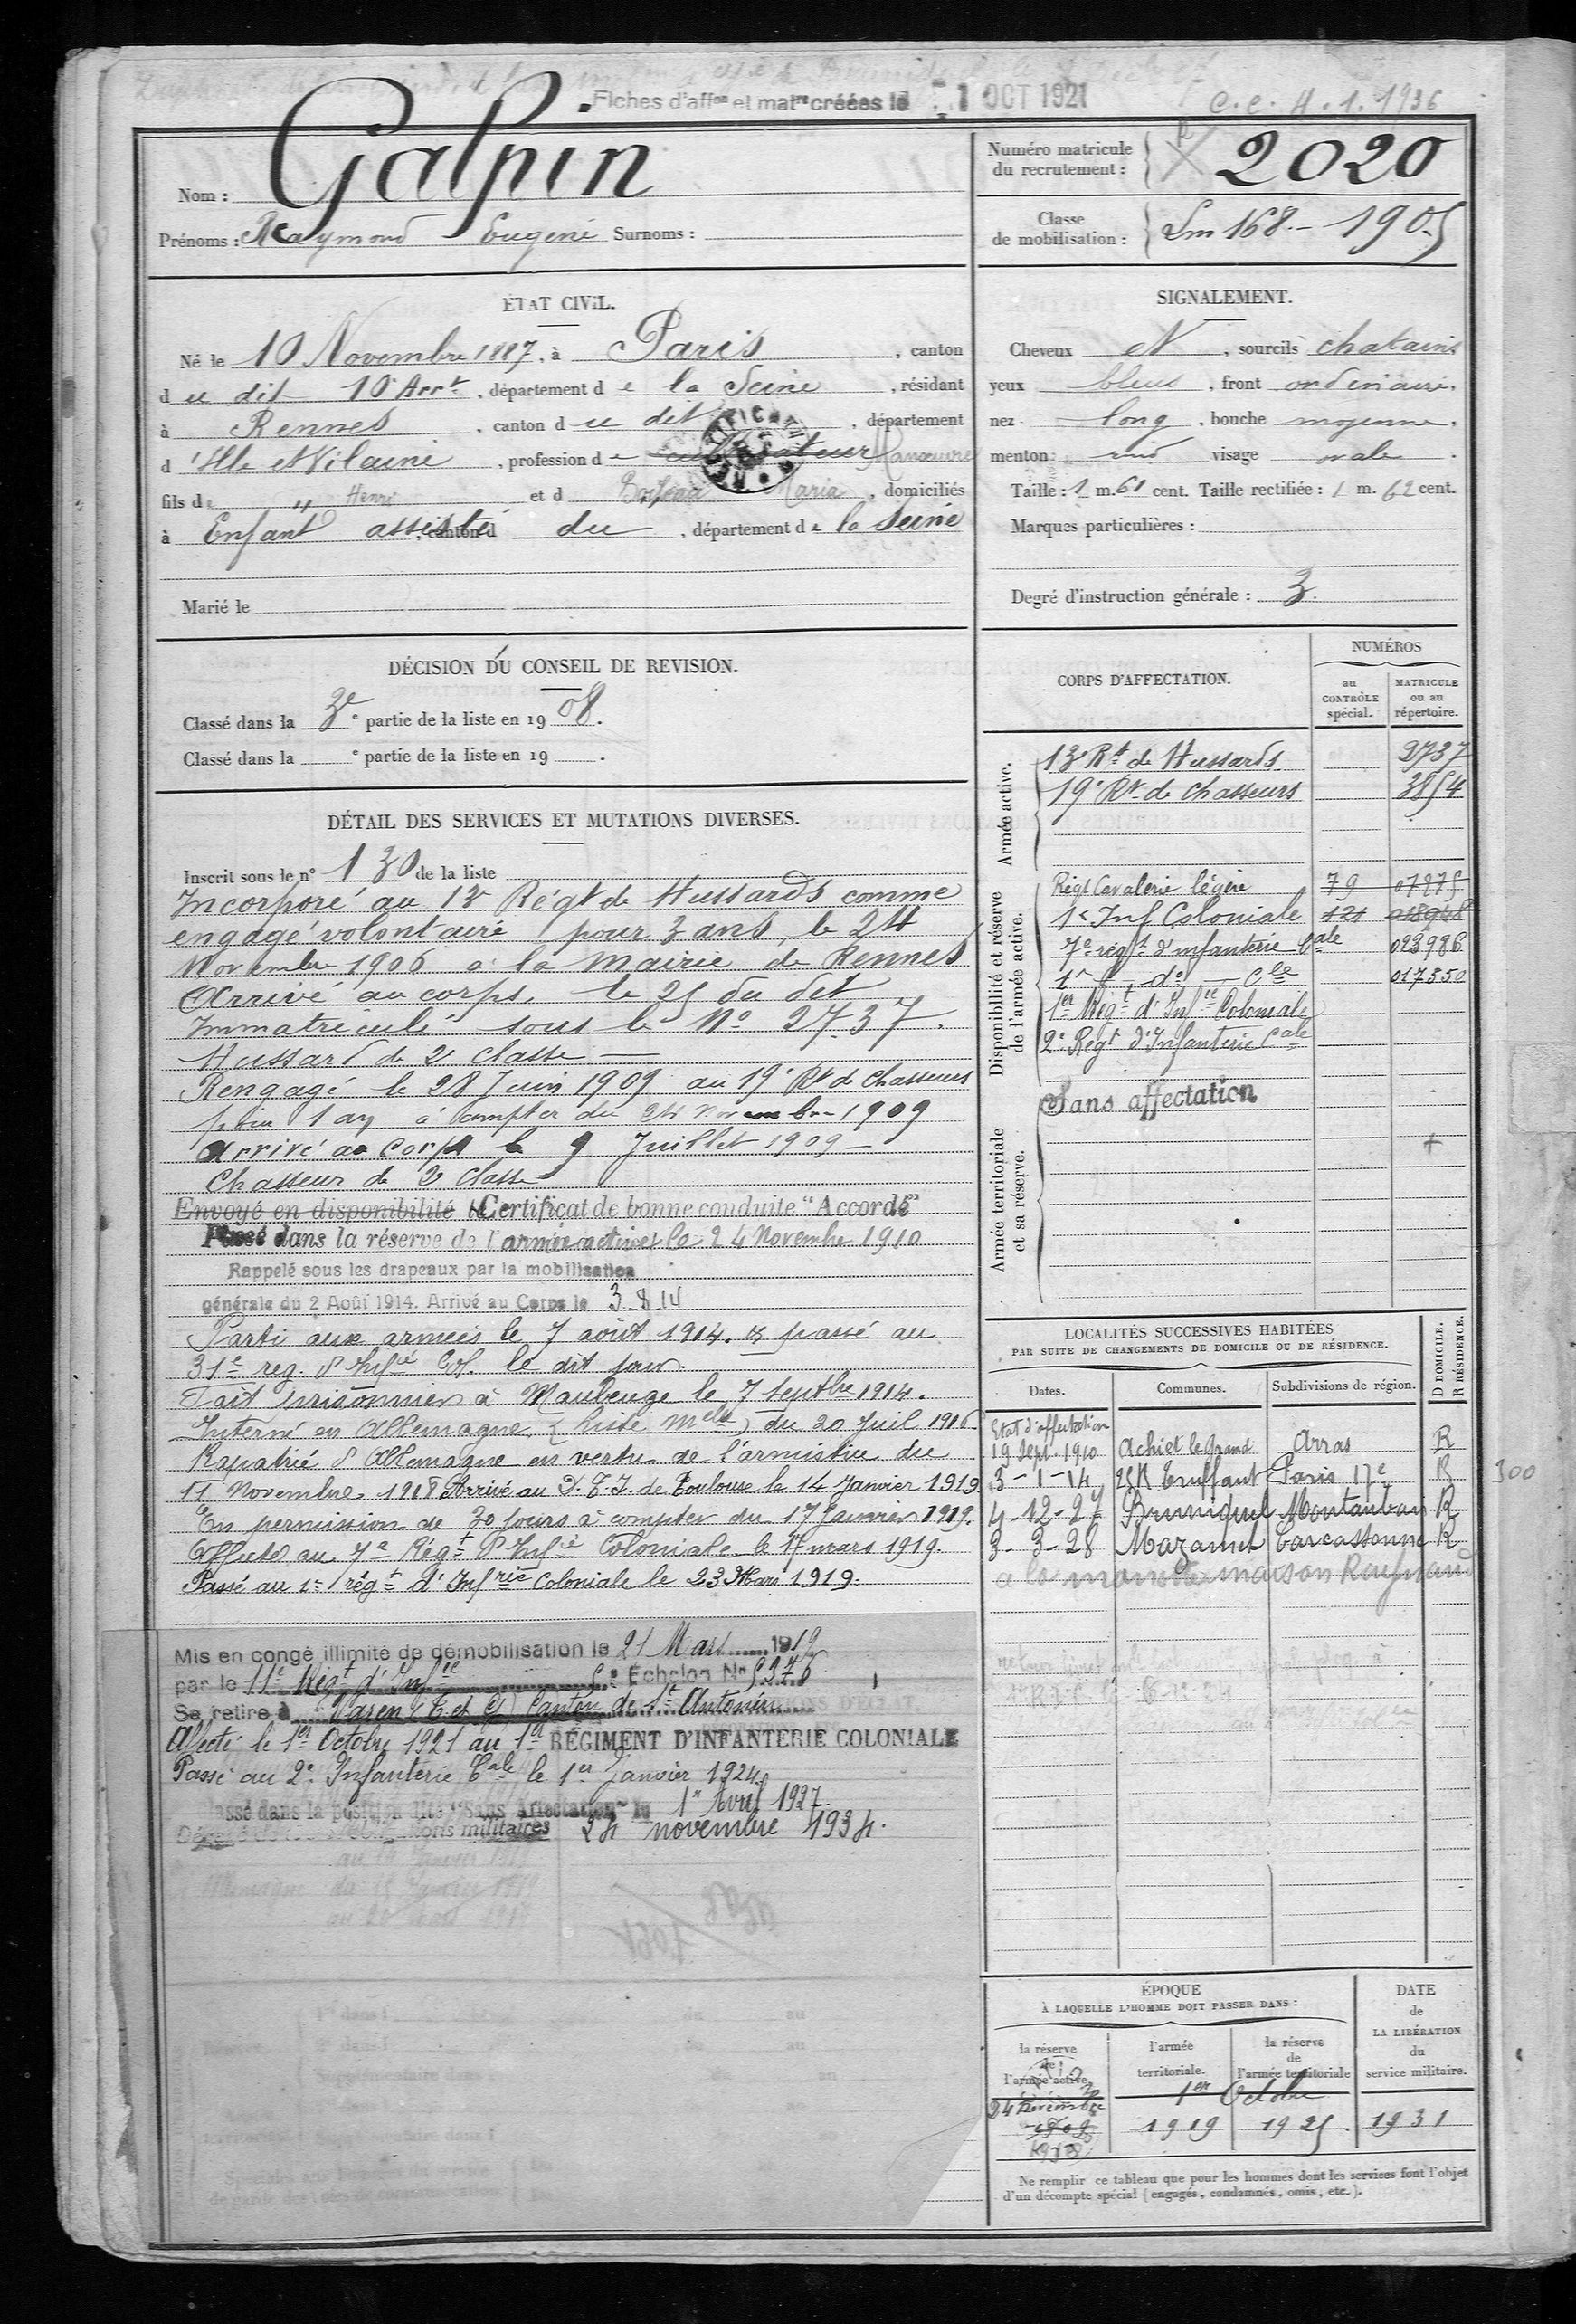 Fiches d'aff^on et mat^re créées le 1 OCT 1921
C.C. 4.1.1936
Nom : Galpin
Prénoms : Raymond Eugène Surnoms :
Numéro matricule du recrutement : 2020
Classe de mobilisation : Lm 168.- 1905
ÉTAT CIVIL.
Né le 10 Novembre 1887, à Paris, canton
du dit 10e Arrt, département de la Seine, résidant
à Rennes, canton du dit, département
d'Ille et Vilaine, profession de cultivateur Manœuvre
fils de " Henri et d Maria, domiciliés
à Enfant assisté, canton d du, département de la Seine
Marié le
SIGNALEMENT.
Cheveux N, sourcils chatains
yeux bleus, front ordinaire.
nez long, bouche moyenne.
menton rond visage ovale.
Taille : 1 m. 61 cent. Taille rectifiée : 1 m. 62 cent.
Marques particulières :
Degré d'instruction générale : 3.
DÉCISION DU CONSEIL DE REVISION.
Classé dans la 3e e partie de la liste en 1908.
Classé dans la e partie de la liste en 19 .
DÉTAIL DES SERVICES ET MUTATIONS DIVERSES.
Inscrit sous le n° 130 de la liste
Incorporé au 13e Régt de Hussards comme
engagé volontaire pour 3 ans, le 24
Novembre 1906 à la Mairie de Rennes
Arrivé au corps, le 25 du dit
Immatriculé sous le No 2737.
Hussard de 2e classe
Rengagé le 28 Juin 1909 au 19e Rt de Chasseurs
pour 1 an à compter du 24 novembre 1909
Arrivé au corps le 9 Juillet 1909
Chasseur de 2e classe
Envoyé en disponibilité le Certificat de bonne conduite "Accordé"
Passé dans la réserve de l'armée active le 24 Novembre 1910
Rappelé sous les drapeaux par la mobilisation
générale du 2 Août 1914. Arrivé au Corps le 3-8-14
Parti aux armées le 7 août 1914. & passé au
31e reg. d'Infie Col. le dit jour.
Fait prisonnier à Maubeuge le 7 septbre 1914.
Interné en Allemagne. (Liste Melle) du 20 Juil 1916.
Rapatrié d'Allemagne en vertu de l'armistice du
11 Novembre 1918. Arrivé au D.T.I. de Toulouse le 14 Janvier 1919
En permission de 30 jours à compter du 17 Janvier 1919.
Affecté au 7e Régt d'Infie Coloniale le 17 mars 1919.
Passé au 1er régt d'Infrie Coloniale le 23 Mars 1919.
Mis en congé illimité de démobilisation le 21 Mars 1919
par le 11e Regt d'Infie 5e Échelon No 5376
Se retire à Varen (T. et G) Canton de St Antonin
Affecté le 1er Octobre 1921 au 1er RÉGIMENT D'INFANTERIE COLONIALE
Passé au 2e Infanterie Cale le 1er Janvier 1924.
Classé dans la position dite "Sans affectation" le 1er Avril 1927.
militaires 24 novembre 1934.
CORPS D'AFFECTATION.
NUMÉROS
au CONTRÔLE spécial.
MATRICULE ou au répertoire.
Armée active.
13e Rt de Hussards 2737
19e Rt de Chasseurs 3854
Disponibilité et réserve de l'armée active.
Régt Cavalerie légère 79 07875
1er Inf Coloniale 121 018948
7e régt d'infanterie Cale 023986
1er do Cle 017350
1er Regt d'Infie Coloniale
2e Regt d'Infanterie Cale
Armée territoriale et sa réserve.
Sans affectation
LOCALITÉS SUCCESSIVES HABITÉES
PAR SUITE DE CHANGEMENTS DE DOMICILE OU DE RÉSIDENCE.
D DOMICILE. R RÉSIDENCE.
Dates. Communes. Subdivisions de région.
Etat d'affectation
19 Sept. 1910 Achiet le Grand Arras R
3-1-14 Truffaut Paris 17e R 300
4-12-27 Bruniquel Montauban R
3-3-28 Mazamet Carcassonne R
à la maison Raynaud
ÉPOQUE
À LAQUELLE L'HOMME DOIT PASSER DANS :
DATE de LA LIBÉRATION du service militaire.
la réserve de l'armée active
l'armée territoriale.
la réserve de l'armée territoriale
24 Novembre 1er Octobre
1919 1925 1931
Ne remplir ce tableau que pour les hommes dont les services font l'objet
d'un décompte spécial (engagés, condamnés, omis, etc.).